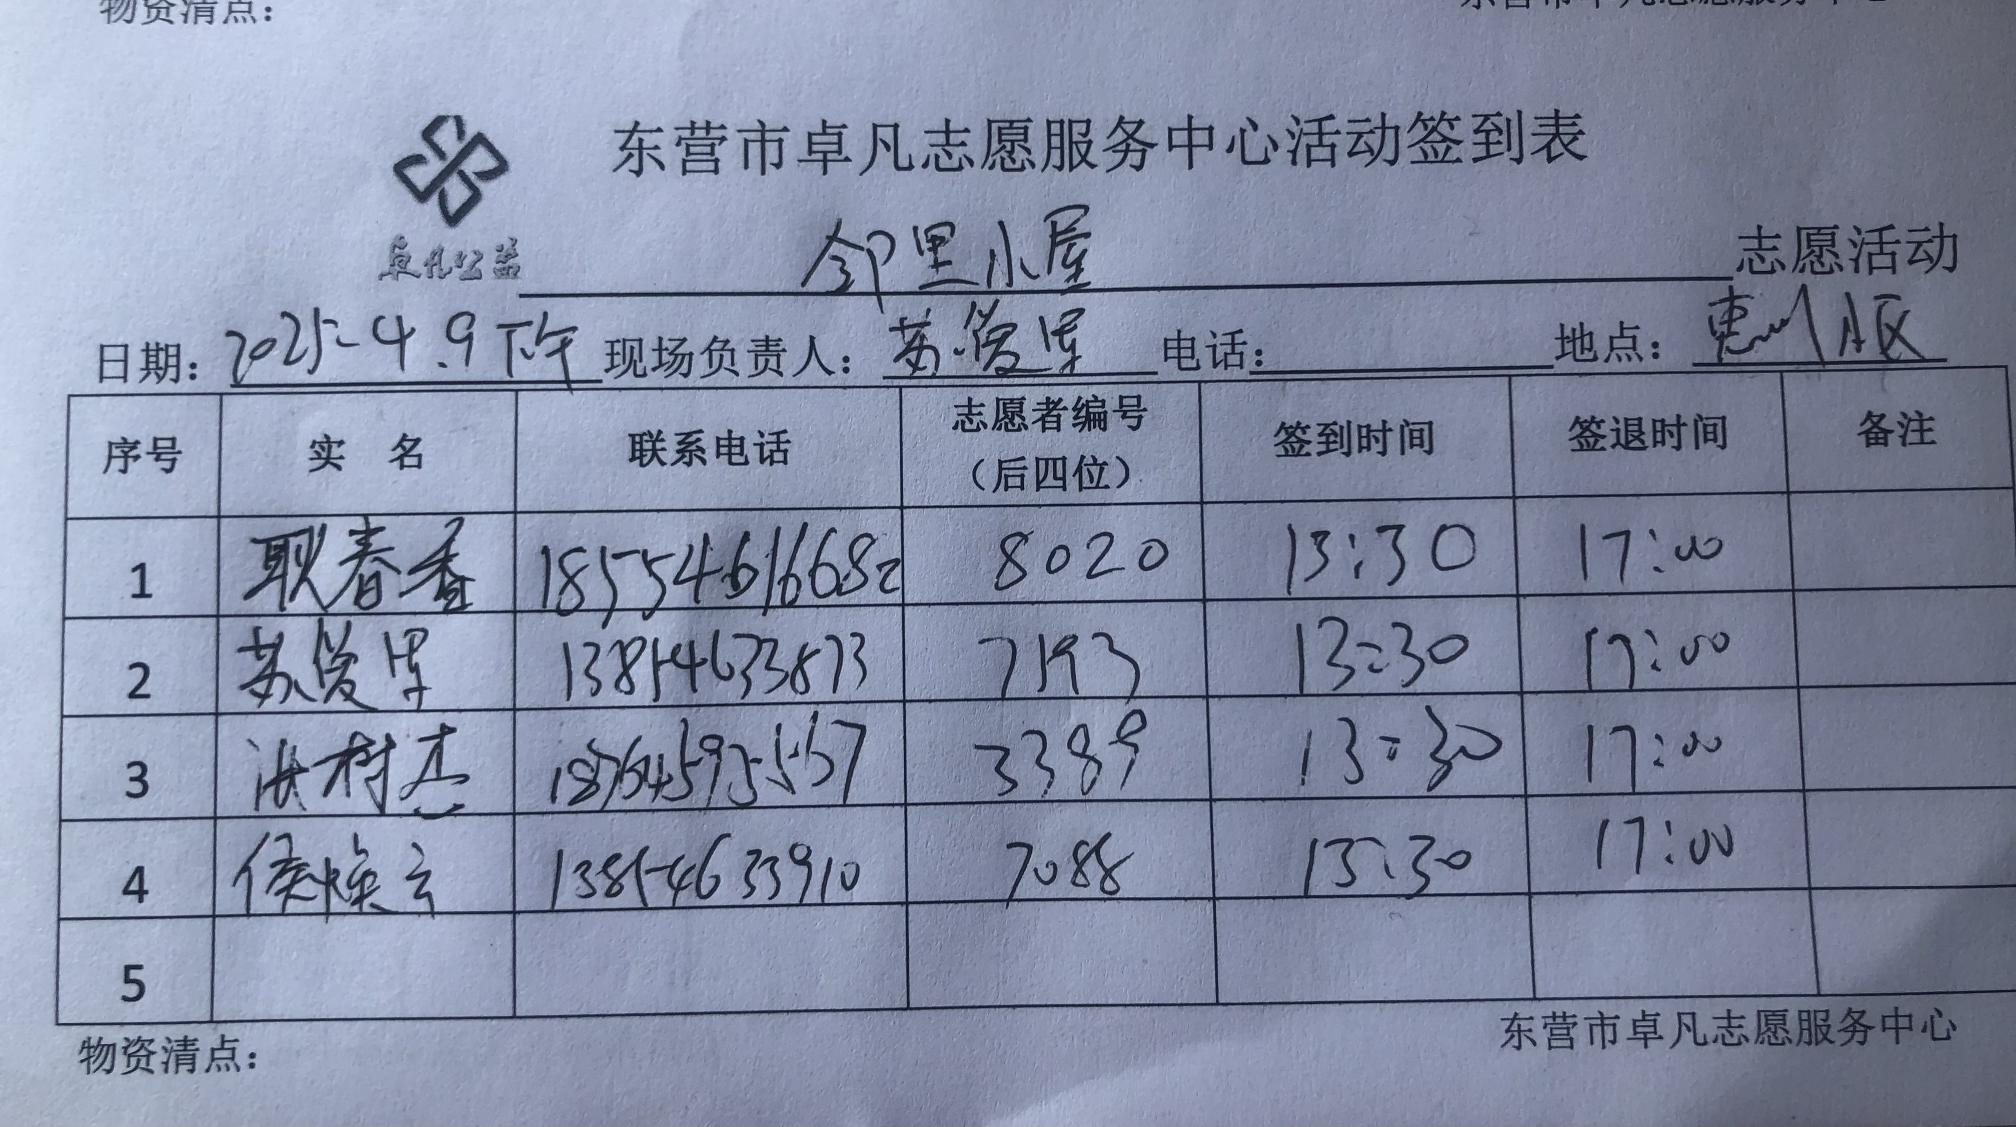 物资清点：
东营市卓凡志愿服务中心
东营市卓凡志愿服务中心活动签到表
卓凡公益
邻里小屋 志愿活动
日期：2025-4.9下午 现场负责人：苏俊军 电话： 地点：惠州A区
序号 实 名 联系电话 志愿者编号（后四位） 签到时间 签退时间 备注
1 耿春香 18554616682 8020 13:30 17:00
2 苏俊军 13854633873 7193 13:30 17:00
3 树杰 18764593557 3389 13:30 17:00
4 侯焕云 13854633910 7088 13:30 17:00
5
物资清点：
东营市卓凡志愿服务中心